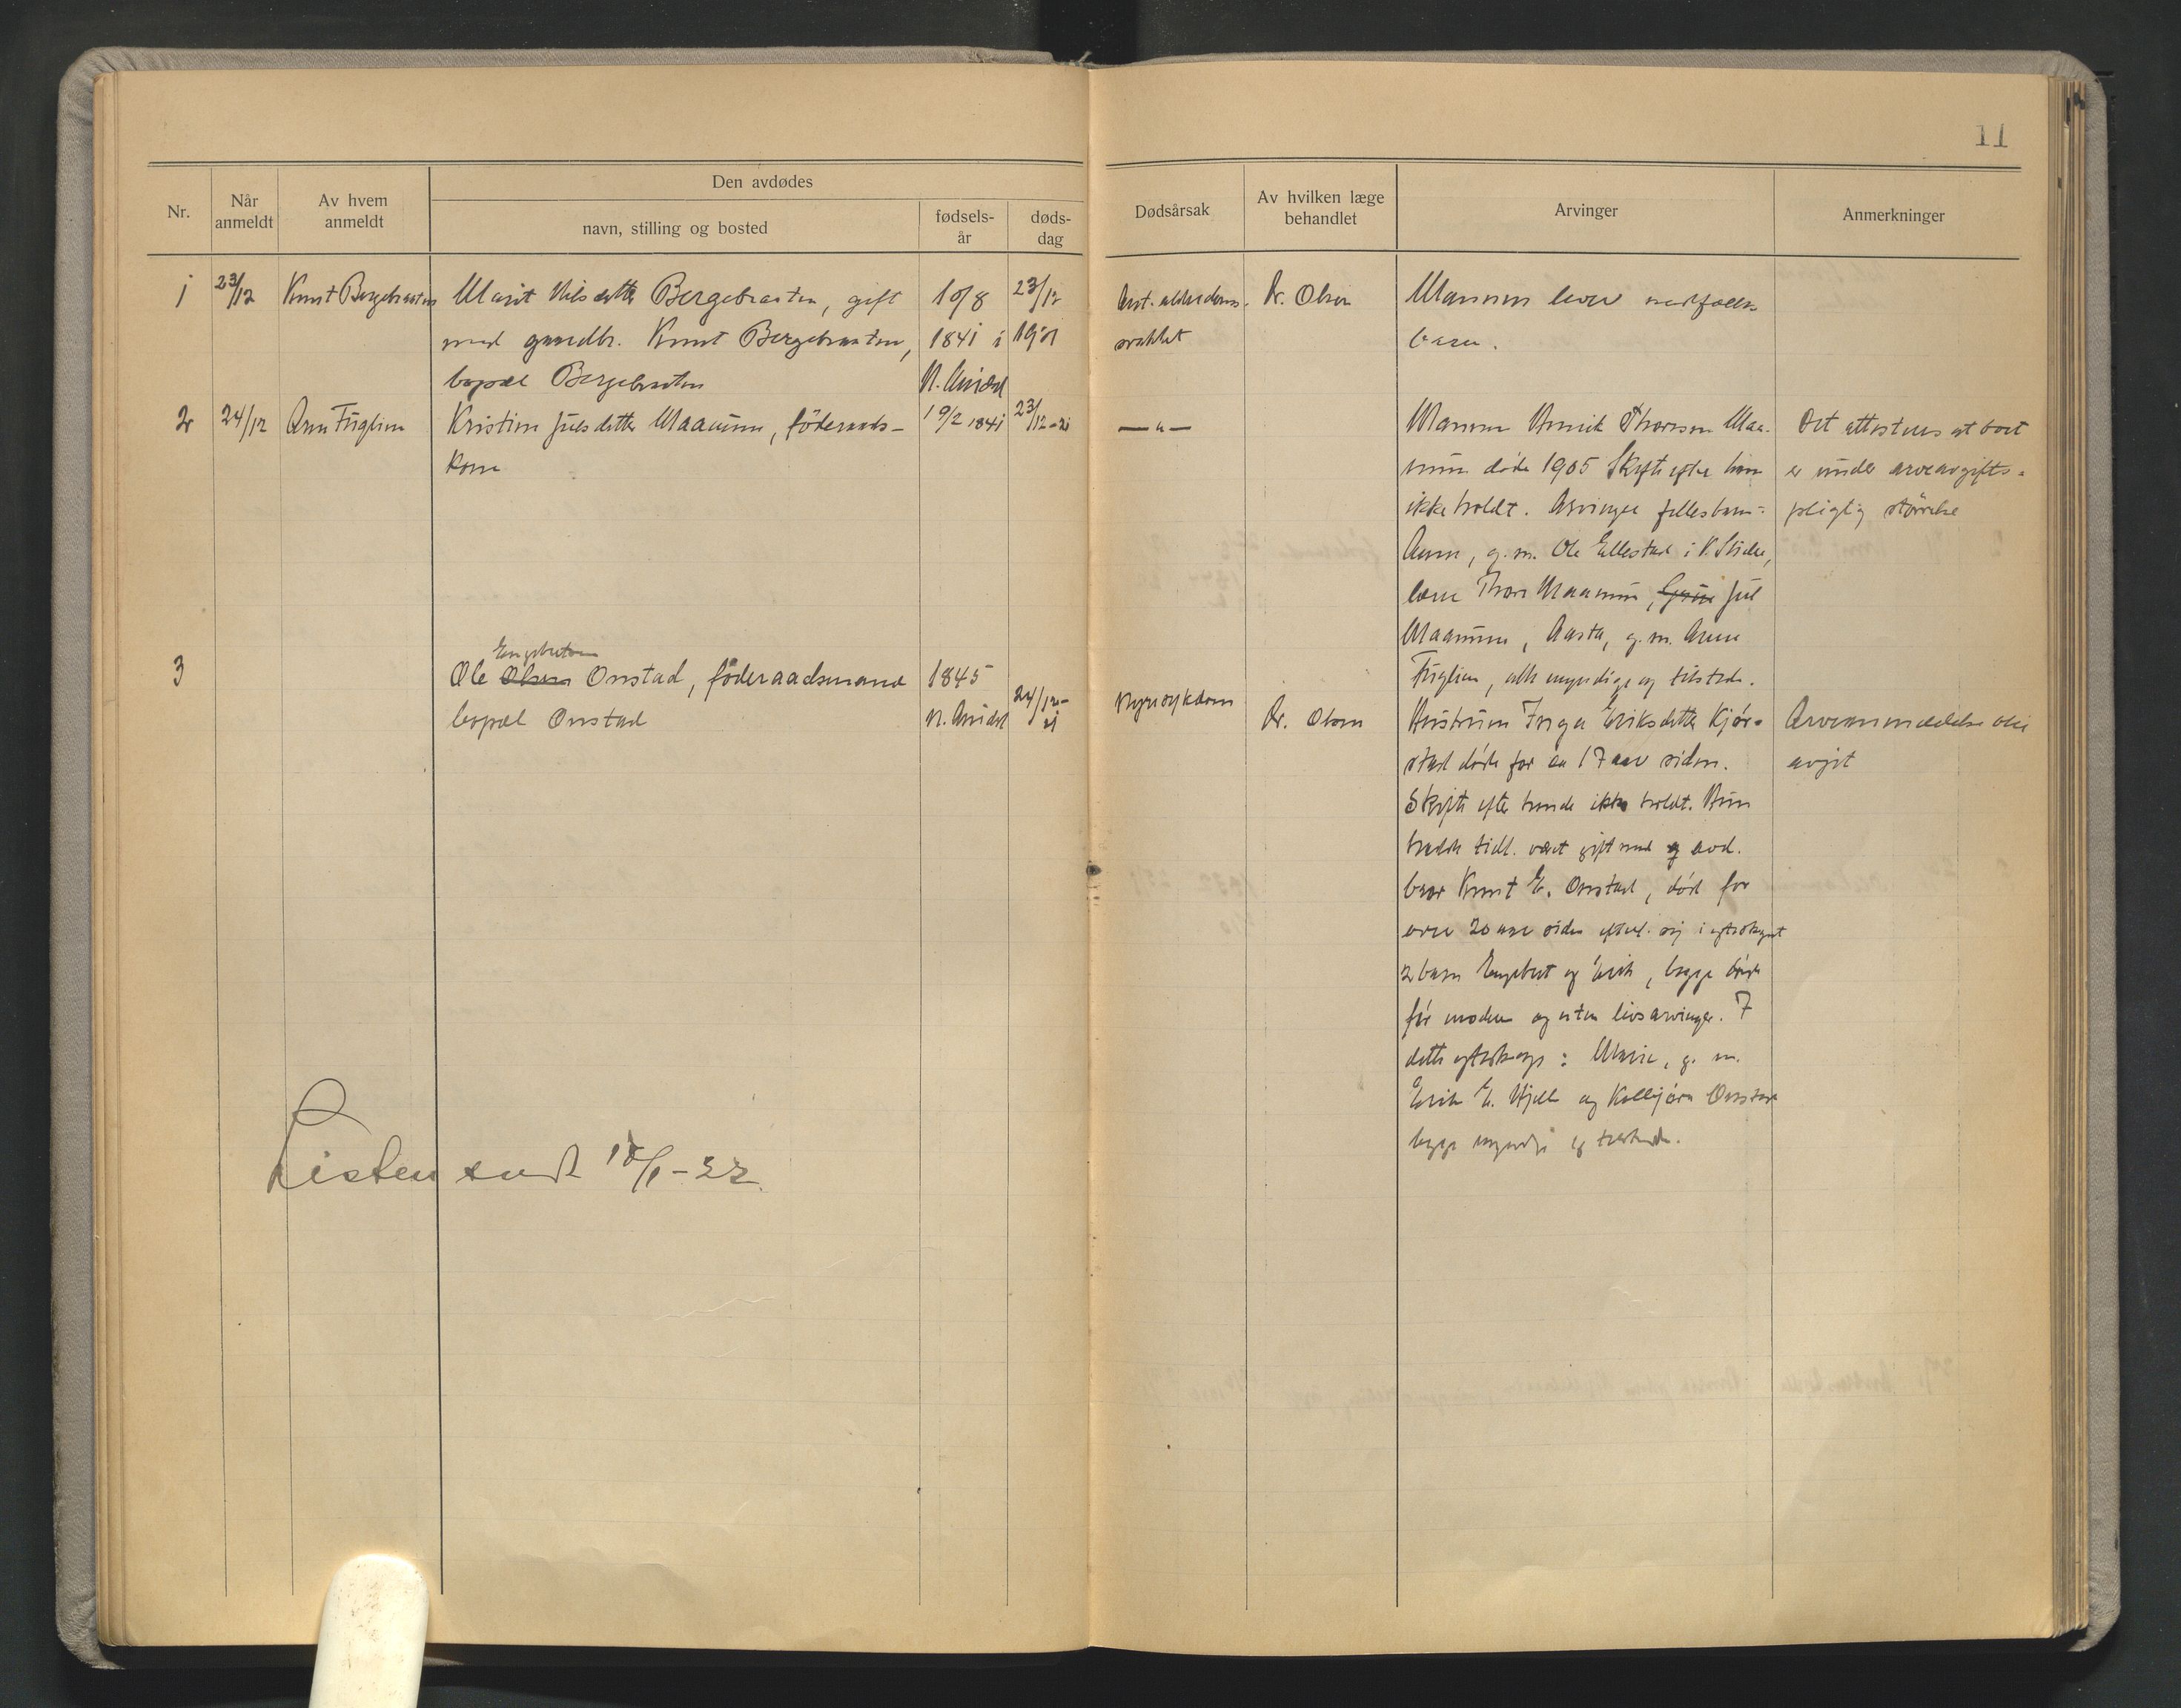 11
Den avdødes
Nr.
Når anmeldt
Av hvem anmeldt
navn, stilling og bosted
fødsels-år
døds-dag
Dødsårsak
Av hvilken læge behandlet
Arvinger
Anmerkninger
1 23/12 Knut Bergebraaten Marit Nilsdatter Bergebraaten, gift 10/8 23/12
med gaardbr. Knut Bergebraaten, 1841 i 1921
bopæl Bergebraaten N. Aurdal
alderdoms-
svakhet
Dr. Olsen
Manden lever med fælles
barn.
2 24/12 Arne Fuglien Kristine Julsdatter Maanum, föderaads- 19/2 1841 23/12-21
kone
— " —
Manden Thoresen Maa-
num døde 1905 Skifte efter ham
ikke holdt. Arvinger fellesbarn:
Anne, g.m. Ole Ellestad i V. Slidre,
Thore Maanum, Jul
Maanum, Aasta, g.m. Arne
Fuglien, alle myndige og tilstede.
Det attesteres at boet
er under arveavgifts-
pligtig størrelse
3
Engebretsen
Ole Olsen Onstad, föderaadsmand 1845
bopæl Onstad N. Aurdal 24/12-21
Nyresykdom
Dr. Olsen
Hustruen Inga Eriksdatter Kjør-
stad døde for ca 17 aar siden.
Skifte efter hende ikke holdt. Hun
hadde tidl. været gift med avd.
bror Knut E. Onstad, død for
over 20 aar siden efterl. sig i egteskapet
2 barn Engebret og Erik, begge døde
før moderen og uten livsarvinger. I
dette egteskap: Marie, g. m.
Erik E. Hjelle og Kolbjørn Onstad
begge myndige og tilstede.
Arveanmeldelse
avgit
Listen sendt 18/1-22.